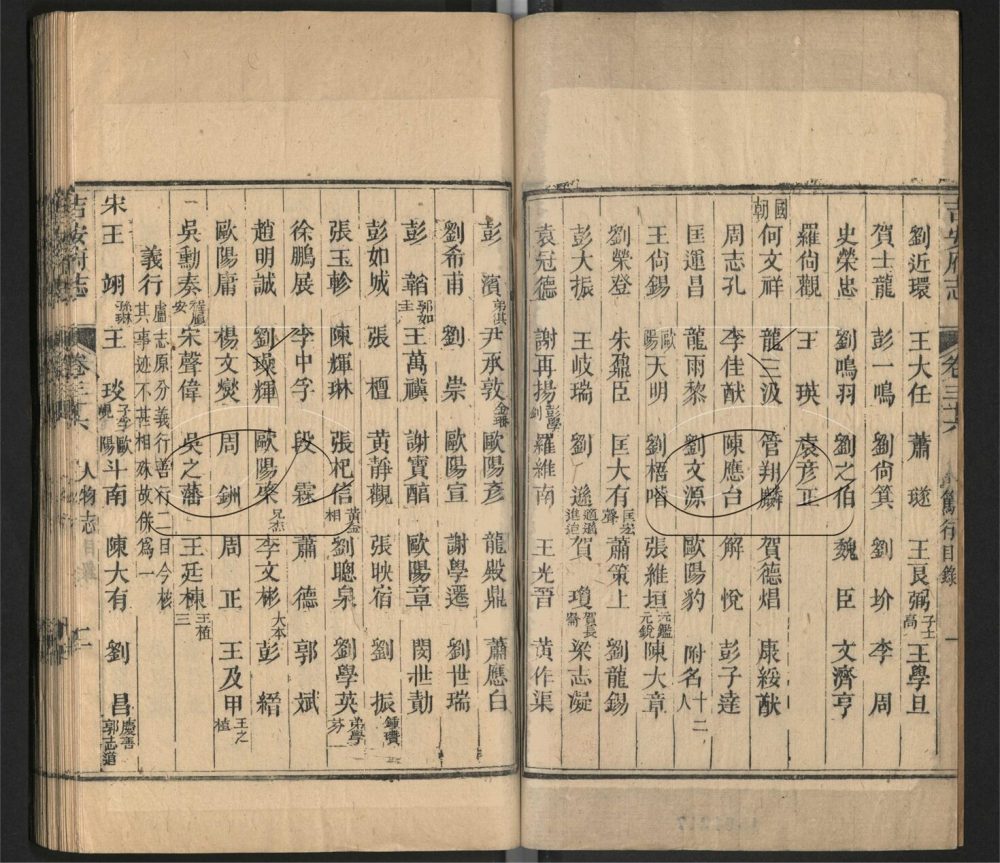 吉安府志 卷三十六 篤行目錄 一
劉近環 王大任 蕭璲 王艮弼 子士高 王學旦
賀士龍 彭一鳴 劉尙箕 劉玠 李周
史榮忠 劉鳴羽 劉之伯 魏臣 文濟亨
羅尙觀 王瑛 袁彥正
國朝
何文祥 龍三汲 管翔麟 賀德焻 康綏猷
周志孔 李佳猷 陳應台 解悅 彭子達
匡運昌 龍雨黎 劉文源 歐陽豹 附名十二人
王尙錫 歐陽天明 劉楷 張維垣 元鑑元銳 陳大章
劉榮登 朱鼐臣 匡大有 蕭策上 劉龍錫
彭大振 王岐瑞 劉遜 賀瓊 賀長 梁志凝
袁冠德 謝再揚 彭學劍 羅維南 王光晉 黃作渠
彭濱 弟淇 尹承敦 金璠 歐陽彥 龍殿鼎 蕭應白
劉希甫 劉崇 歐陽宣 謝學遷 劉世瑞
彭韜 郭如圭 王萬禩 謝寶醕 歐陽章 閔世勛
彭如城 張檀 黃靜觀 張映宿 劉振 鍾瓚
張玉軫 陳輝琳 張杞信 黃金相 劉聰泉 劉學英 弟學芬
徐鵬展 李中孚 段霖 蕭德 郭斌
趙明誠 劉燦輝 歐陽棐 兄杰 李文彬 大本 彭縉
歐陽庸 楊文燮 周釧 周正 王及甲 王之植
吳勳奏 宋聲偉 吳之藩 王廷棟 王植三
義行 盧志原分義行善行二目今核其事迹不甚相殊故併爲一
宋 王翊 孫琳 王琰 子孚 歐陽斗南 陳大有 劉昌 慶善 郭志道
吉安府志 卷三十六 人物志 目錄 二